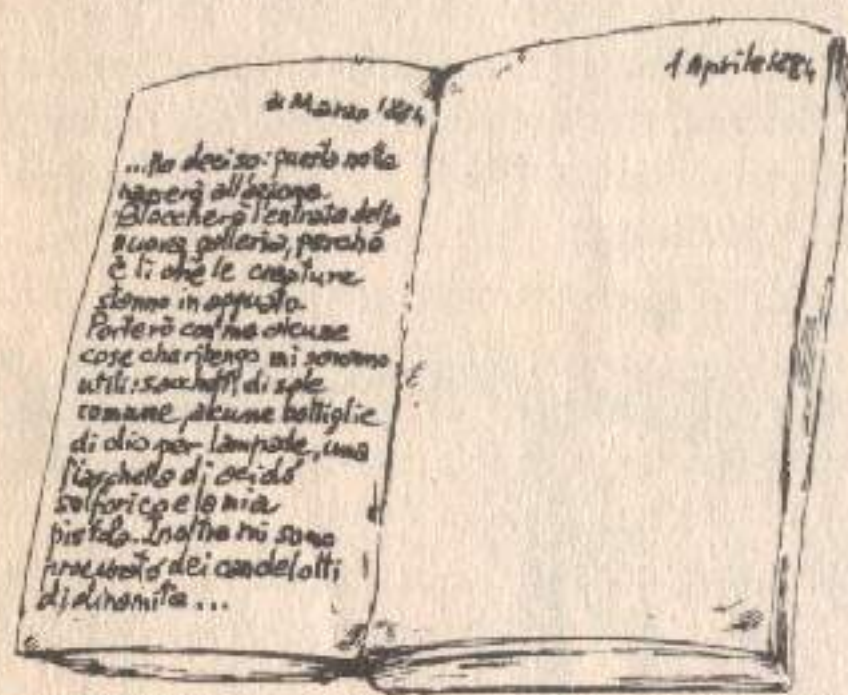 di Marzo 1884
...Ho deciso: questa notte
passerò all'azione.
Bloccherò l'entrata della
nuova galleria, perché
è lì che le creature
stanno in agguato.
Porterò con me alcune
cose che ritengo mi saranno
utili: sacchetti di sale
comune, alcune bottiglie
di olio per lampade, una
fiaschetta di acido
solforico e la mia
pistola. Inoltre mi sono
procurato dei candelotti
di dinamite...
1 Aprile 1884